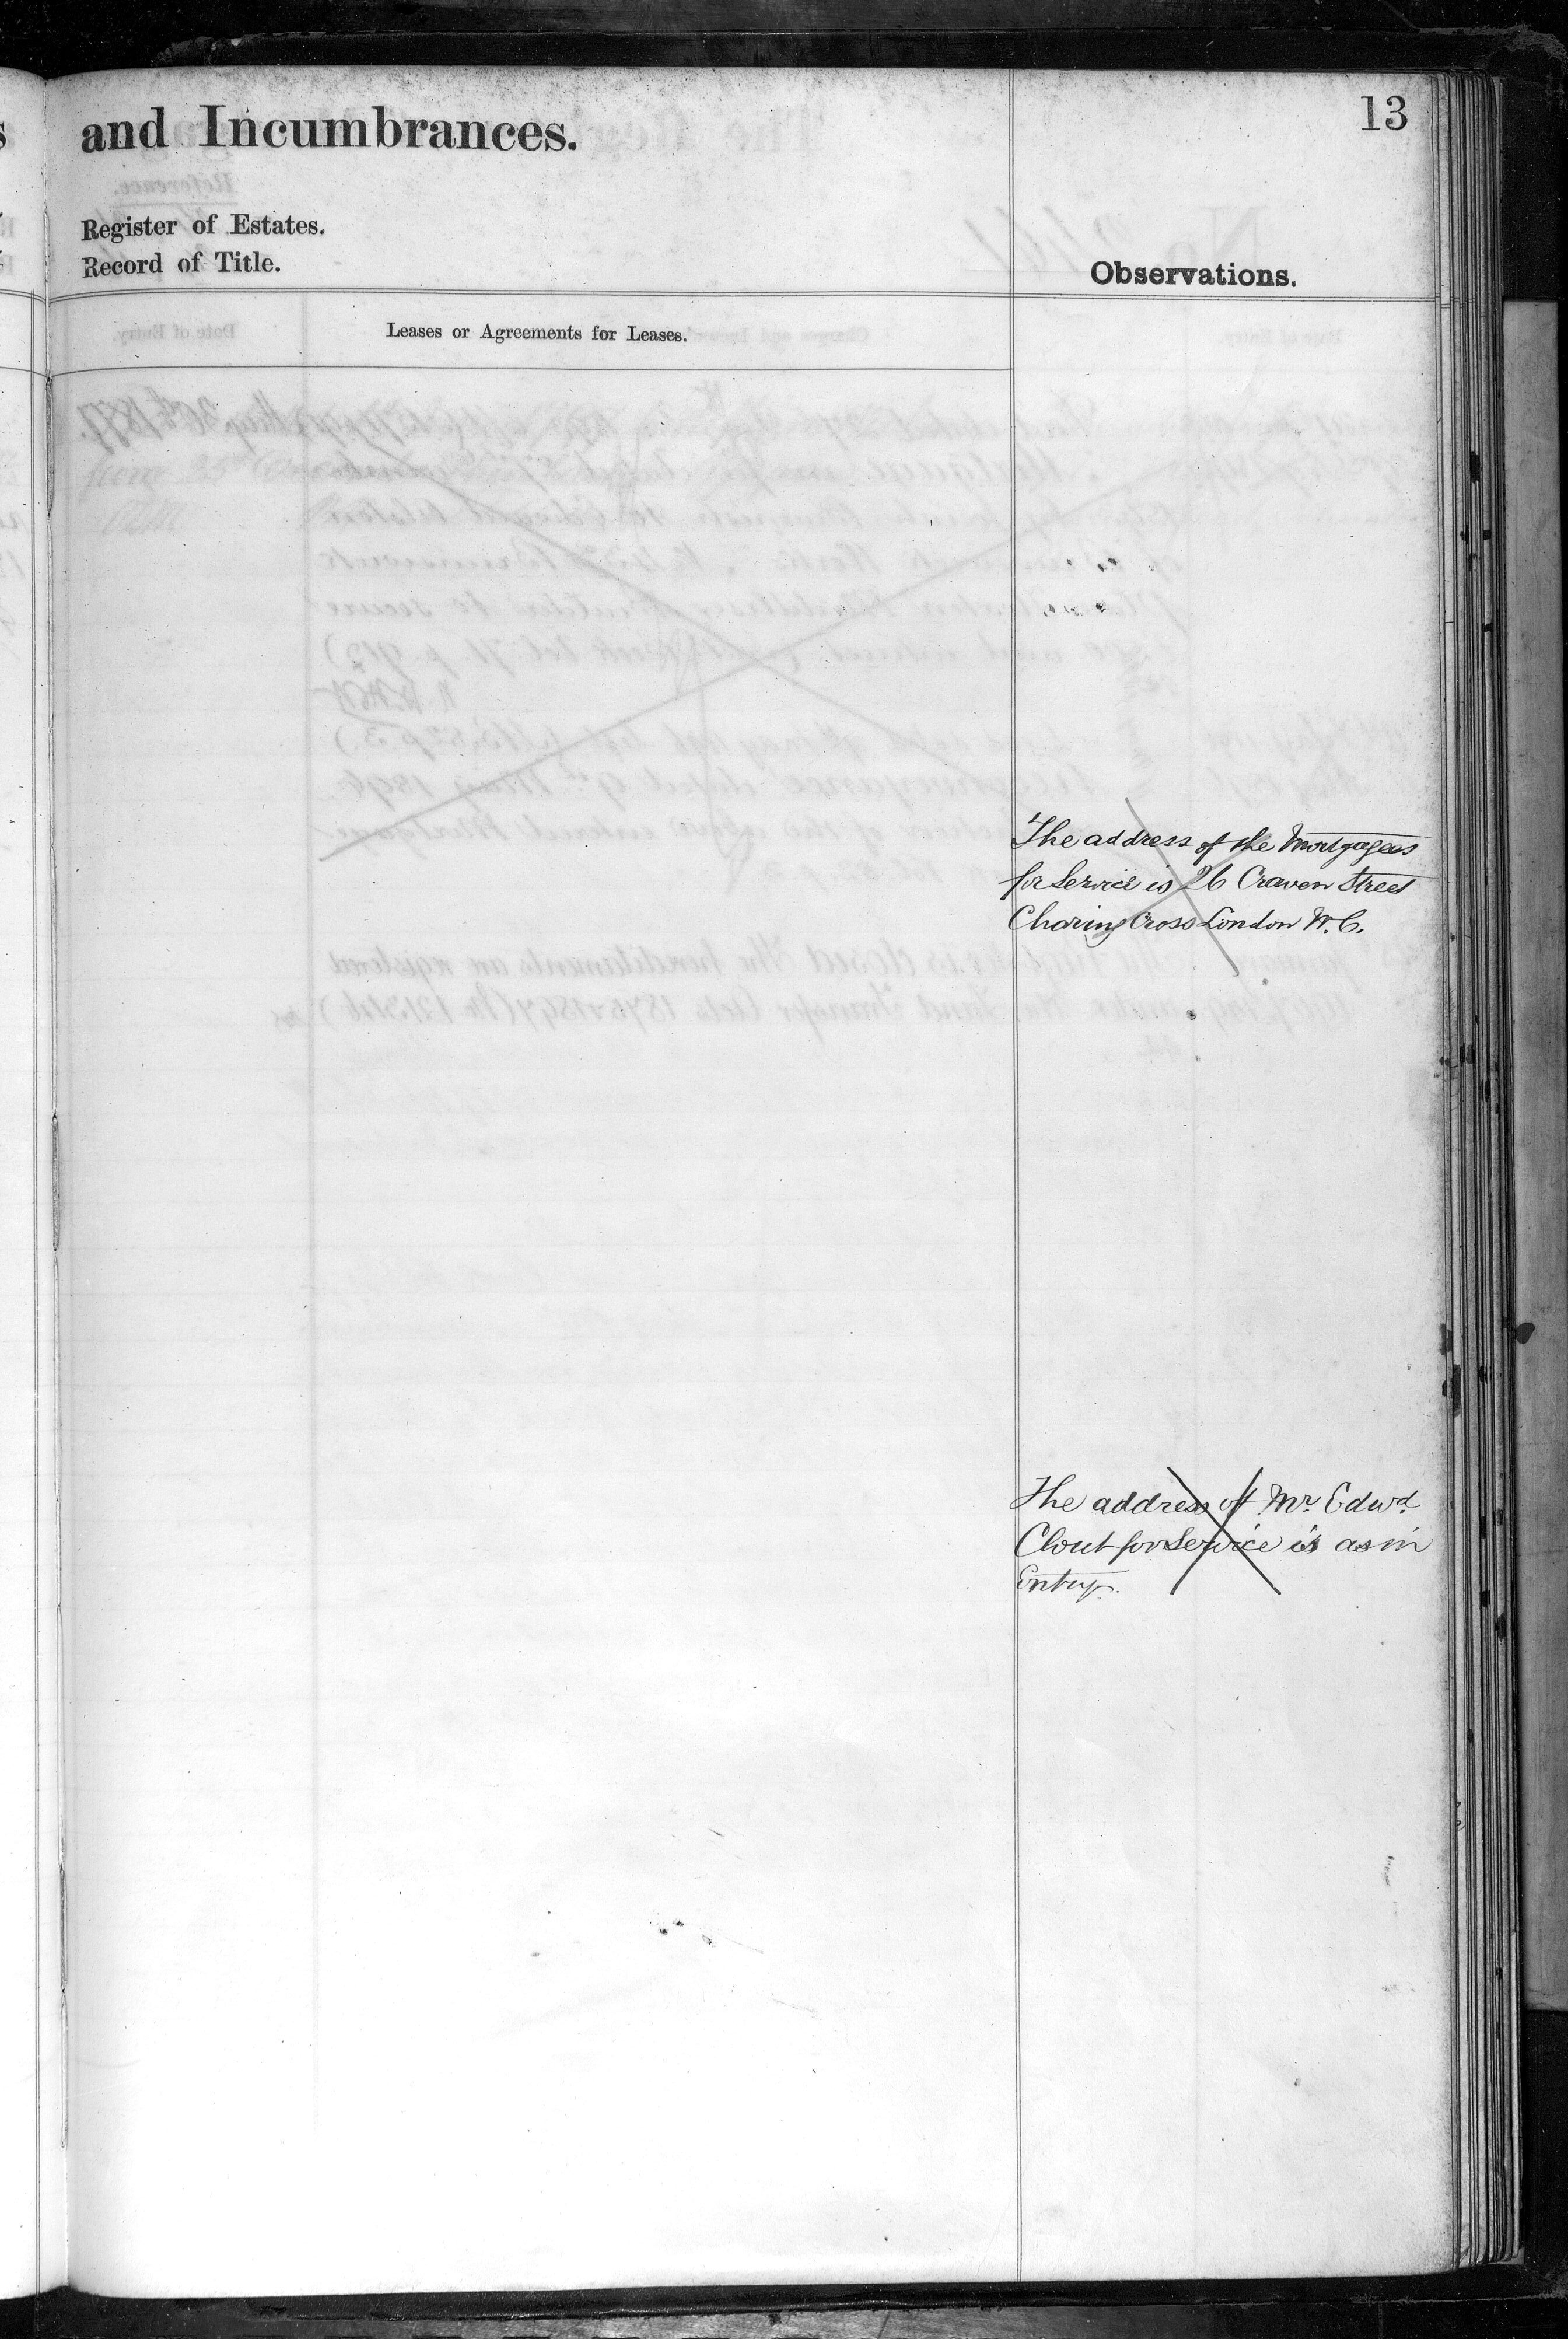 13
and Incumbrances.
Register of Estates.
Record of Title.
Observations.
Leases or Agreements for Leases.
The address of the Mortgagees
for Service is 26 Craven Street
Charing Cross London W.C.
The address of Mr. Edwd.
Clout for Service is as in
Entry.